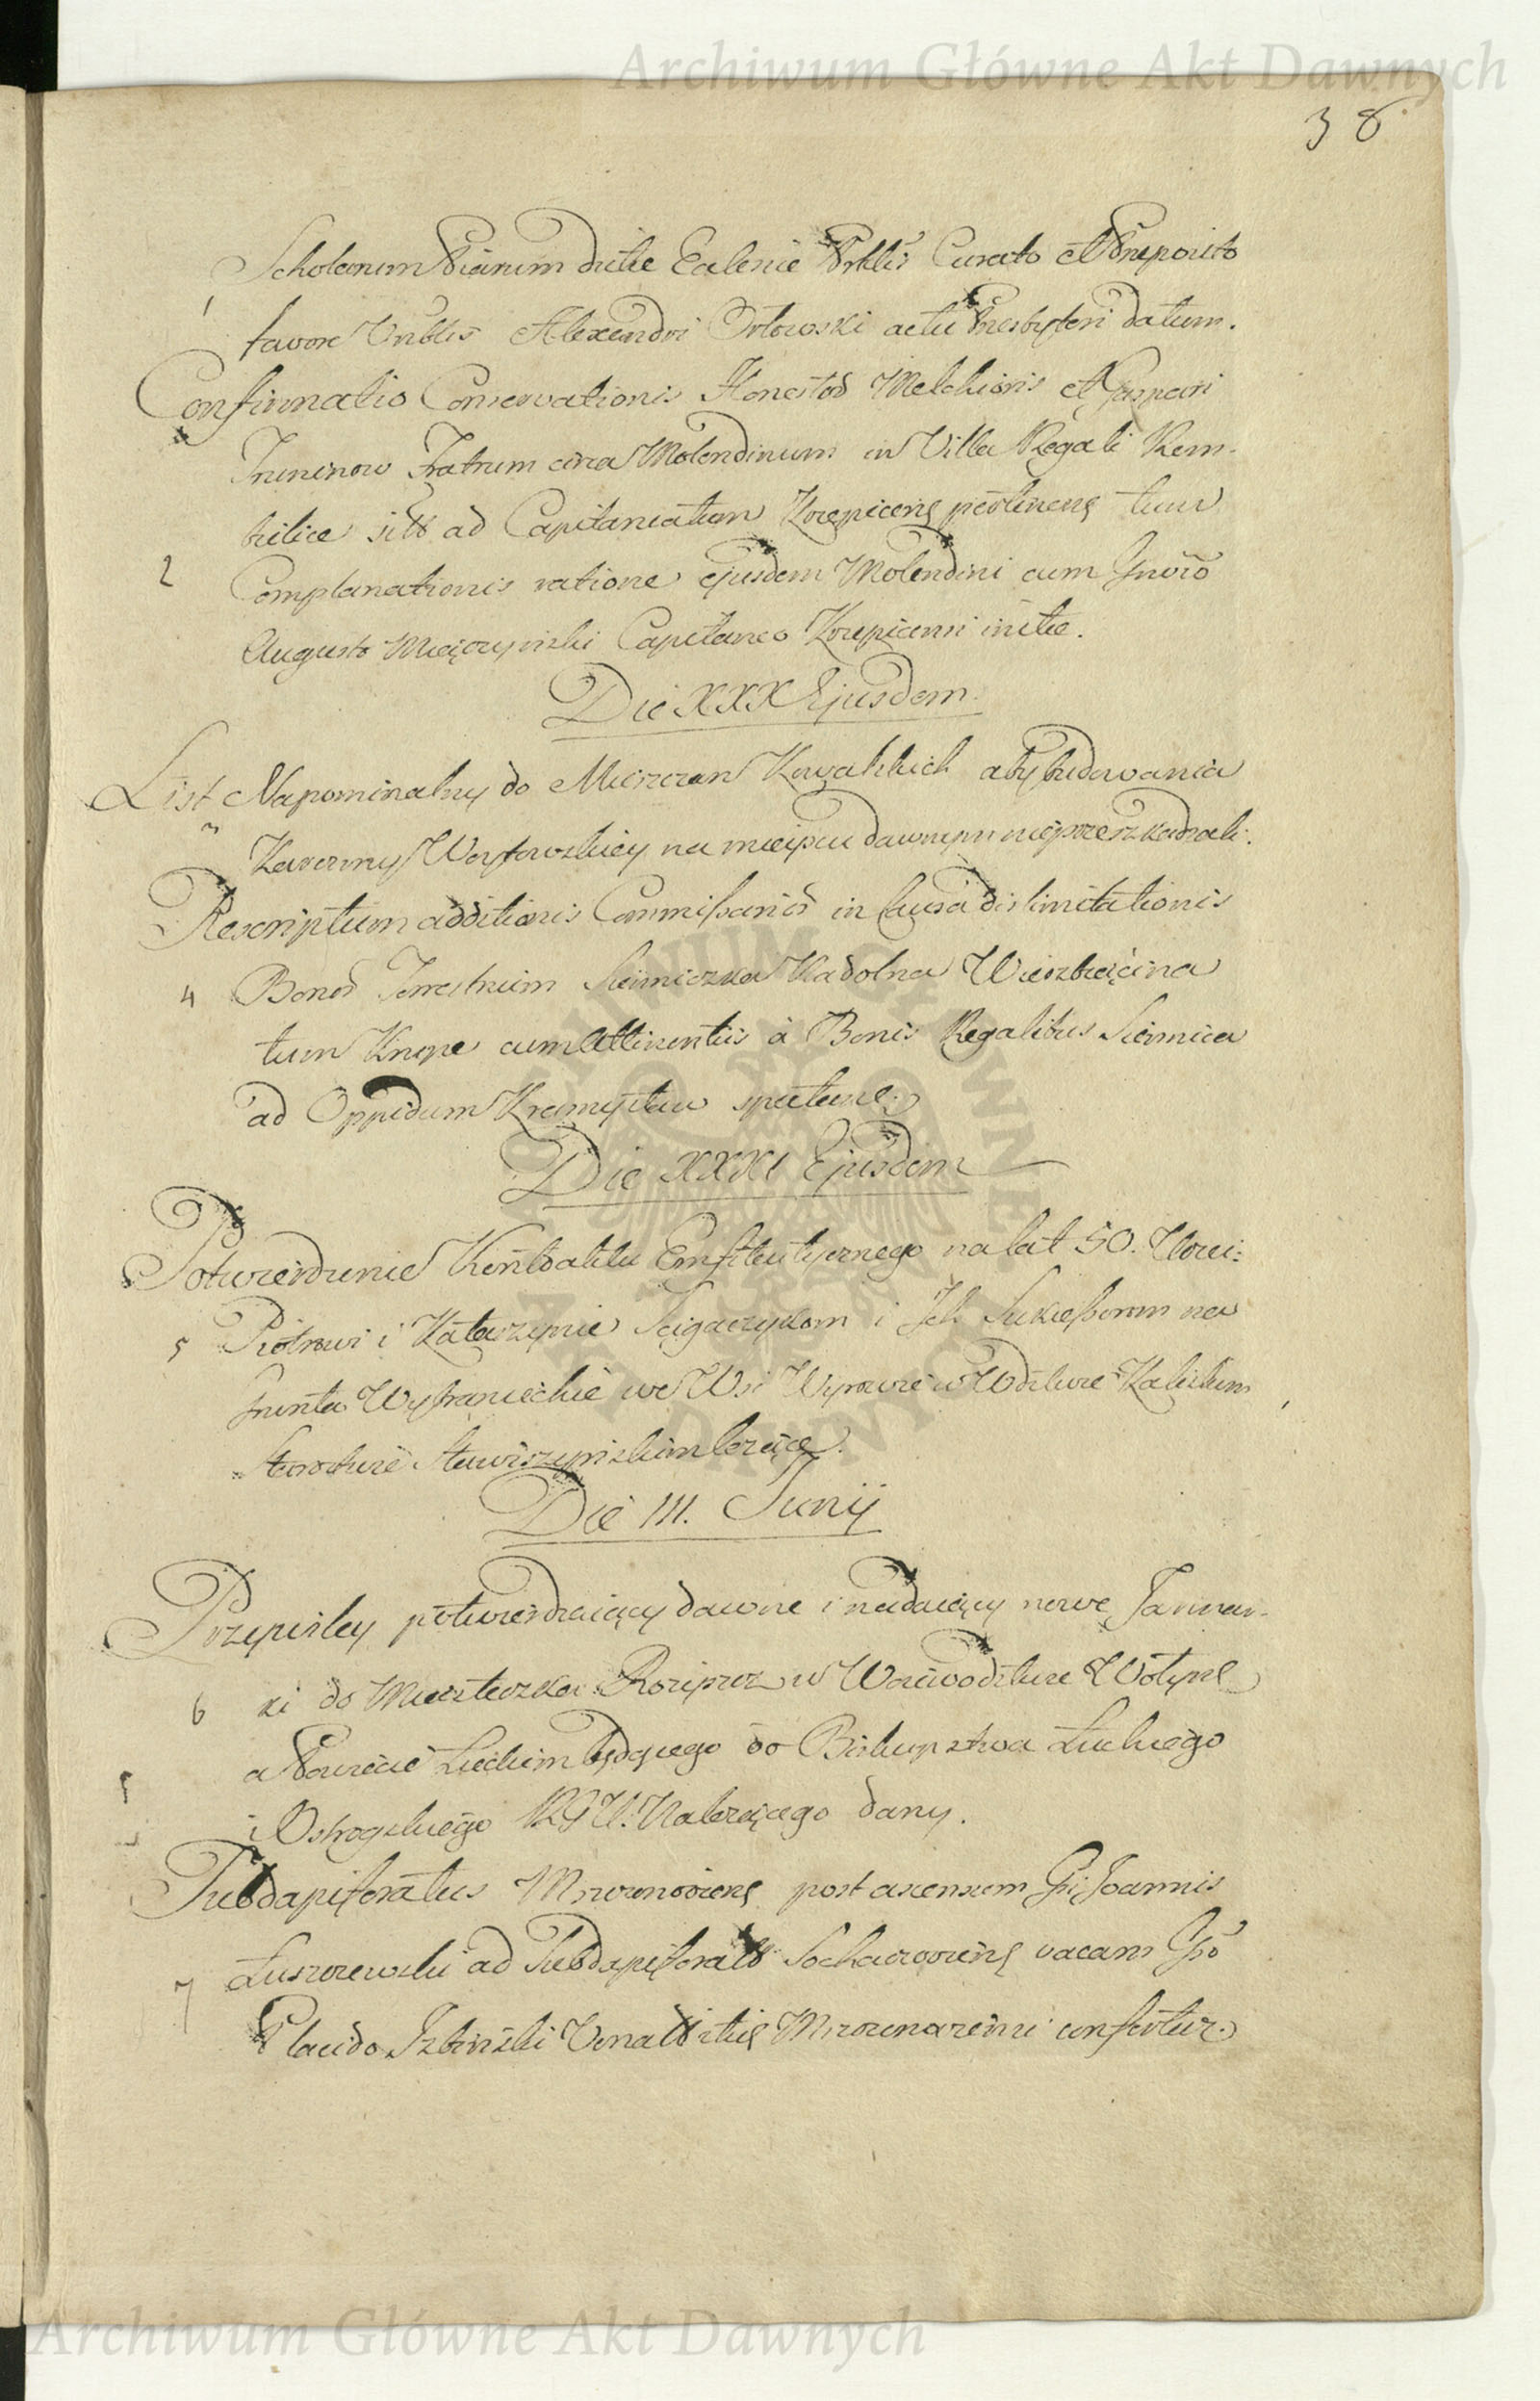 Archiwum Główne Akt Dawnych
38.
Scholarum Piarum dictæ Ecalesiæ Prklis Curato et Præposito
1 favore Vnblis Alexandri Orłowski actu Presbyteri datum.
Confirmatio Conservationis Honestor Melchioris et Gaspari
Fratrum circa Molendinum in Villa Regali Rem-
bilice sitt ad Capitaneatum Krzepicens pertinens tum
2 Complanationis ratione ejusdem Molendini cum Gnoso
Augusto Męciczyński Capitaneo Krzepicensi initæ.
Die XXX Ejusdem
List Napominalny do Mieszczan Kowalskich aby budowania
3 Karczmy Woytowskiey na mieyscu dawnym nieprzeszkadzali.
Rescriptum additionis Commissarior in Causa dislimitationis
4 Bonor Terrestrium Siemiczka Nadolna
tum Krupe cum Attinentiis à Bonis Regalibus Siennica
ad Oppidum Krasnystaw spectanê.
Die XXXI Ejusdem
Potwierdzenie Kontraktu Emfiteutycznego na lat 50. Urodz:
5 Piotrowi i Katarzynie Scigaczykom i Ich Sukcessorom na
Grunta Wybranieckie we Wsi Wyrowie w Wdztwie Kaliskim
Starostwie Stawiszynskim leżące.
Die III. Junij
Przywiley potwierdzaiący dawne i nadaiący nowe Jarmar-
6 ki do Miasteczka Rożyszcz w Woiewodztwie Wołyns
a Powiecie Łuckim będącego do Biskupstwa Łuckiego
i Ostrogskiego RGU. Należącego dany.
Subdapiferatus post ascensum Gsi Joannis
7 Łuszczewski ad Subdapiferatt Sochaczoviens vacans Gso
Placido Izbiński confertur.
Archiwum Główne Akt Dawnych